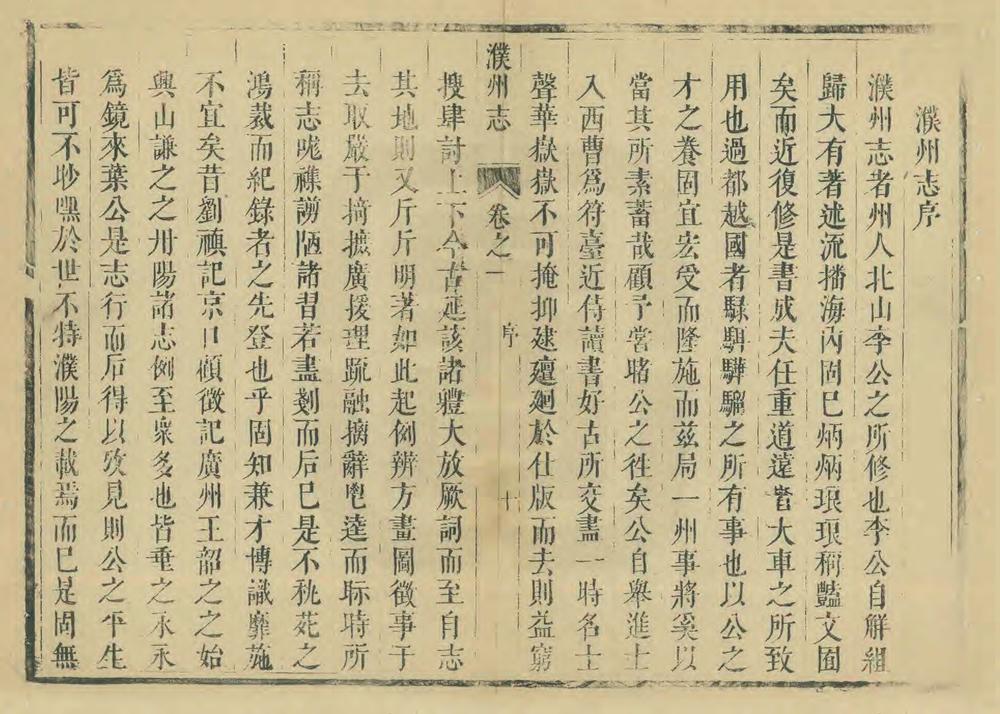 濮州志序
濮州志者州人北山李公之所修也李公自解組
歸大有著述流播海內固巳炳炳琅琅稱豔文囿
矣而近復修是書成夫任重道遠嘗大車之所致
用也過都越國者騄駬驊騮之所有事也以公之
才之養固宜宏受而隆施而茲局一州事將奚以
當其所素蓄哉顧予嘗晤公之徃矣公自舉進士
入西曹爲符臺近侍讀書好古所交盡一時名士
聲華嶽嶽不可掩抑建邅廻於仕版而去則益窮
濮州志
卷之一
序
十
搜肆討上下今古延該諸軆大放厥詞而至自志
其地則又斤斤明著如此起例辨方畫圖徵事于
去取嚴于摘摭廣援理䟽融摛辭鬯達而眎時所
稱志㖼襍謭陋諸習若盡剗而后巳是不秇苑之
鴻裁而紀錄者之先登也乎固知兼才博識靡施
不宜矣昔劉禛記京口顧徵記廣州王韶之之始
興山謙之之丹陽諸志例至衆多也皆垂之永永
爲鏡來葉公是志行而后得以攷見則公之平生
皆可不吵嘿於世不特濮陽之載焉而巳是固無